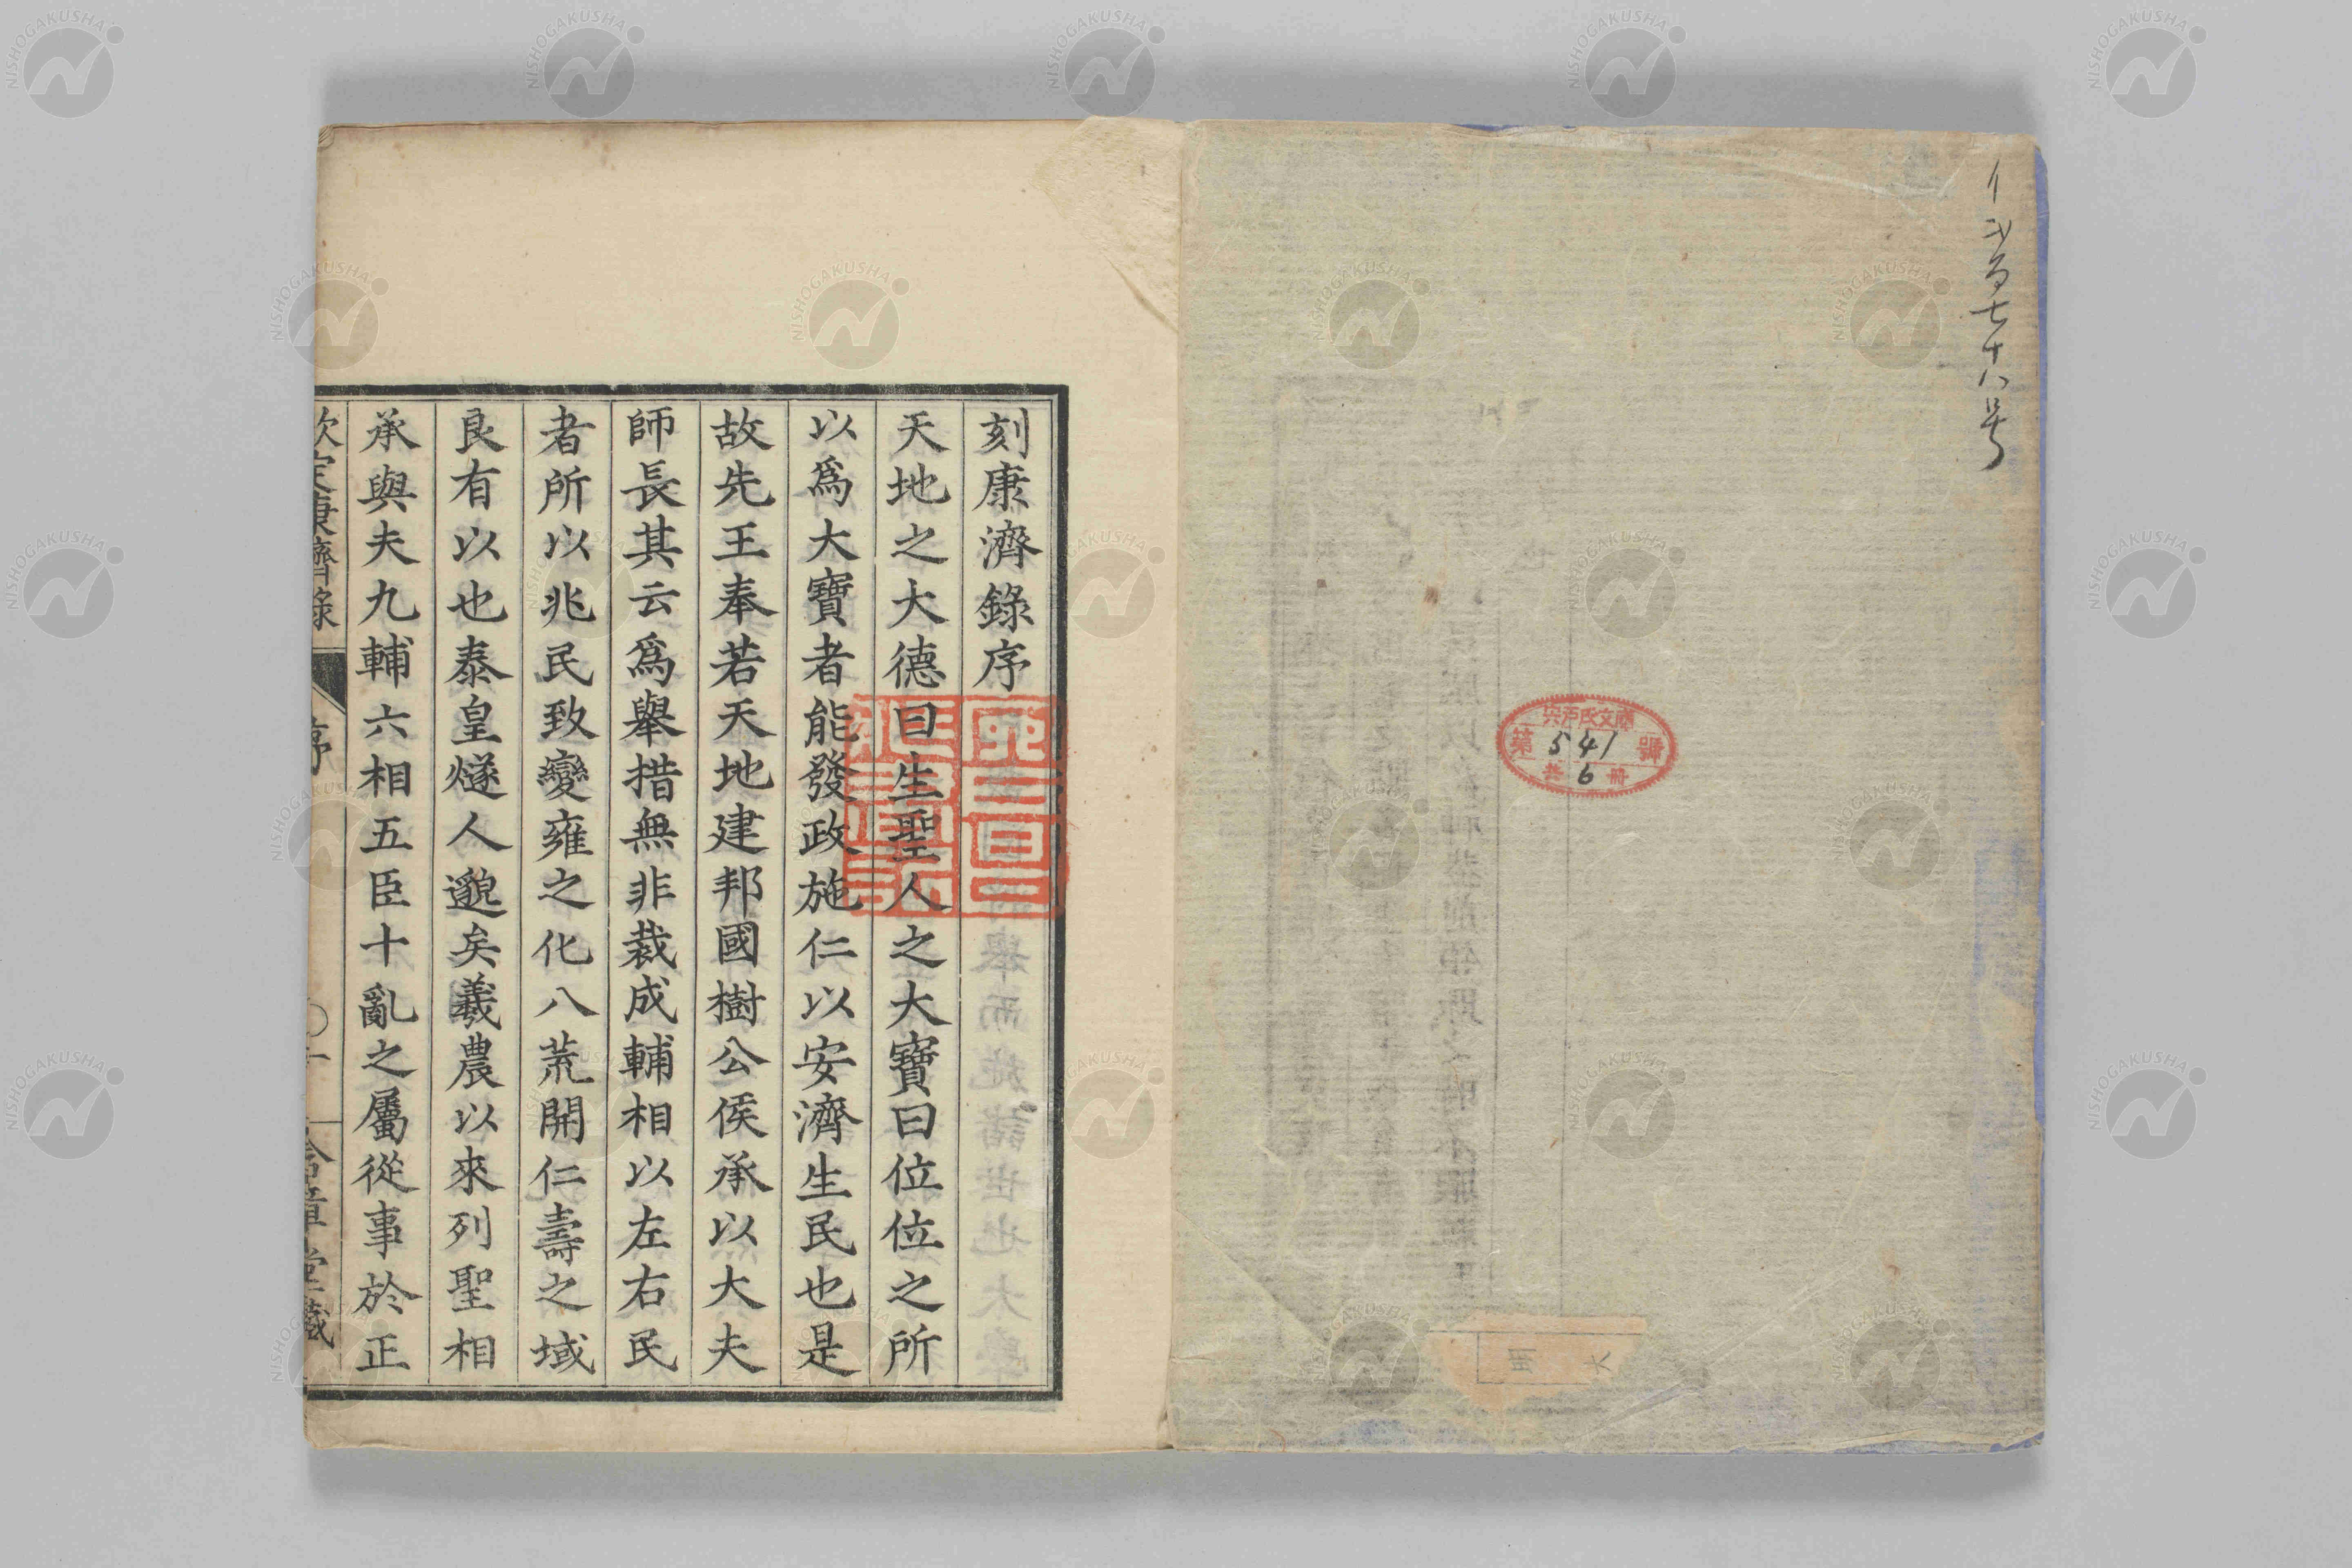 刻康濟錄序
天地之大德曰生聖人之大寶曰位位之所
以爲大寶者能發政施仁以安濟生民也是
故先王奉若天地建邦國樹公侯承以大夫
師長其云爲舉措無非裁成輔相以左右民
者所以兆民致變雍之化八荒開仁壽之域
良有以也泰皇燧人邈矣羲農以來列聖相
承與夫九輔六相五臣十亂之屬從事於正
欽定康濟錄
序
含章堂藏
七十八号
宍戸氏文庫
第541號
共6冊
NISHOGAKUSHA